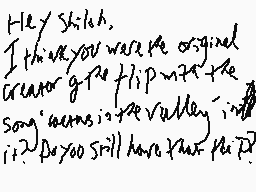 Hey Shiloh,
I think you were the original
creator of the flip with the
song "cactus in the valley" in
it? Do you still have that flip?